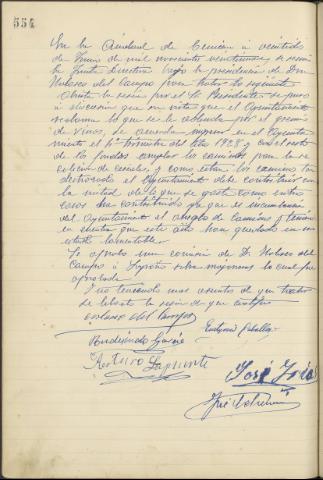 554
En la Ciudad de Cenicero á veintidos
de Junio de mil novecientos veintinueve se reunió
la Junta Directiva bajo la presidencia de Don
Nolasco del Campo para tratar lo siguiente
Abierta la sesión por el Sr Presidente se puso
á discusion que en vista que el Ayuntamiento
reclama lo que se le adeuda por el gremio
de vinos, se acuerda ingresar en el Ayunta-
miento el 4º trimestre del año 1928 y con el resto
de los fondos arreglar los caminos para la re-
colección de cereales, y como estan los caminos tan
destrozados el Ayuntamiento debe contribuir con
la mitad de lo que se gaste como entre
casos han contribuido ya que es incumbencia
del Ayuntamiento el arreglo de caminos y teniendo
en cuenta que este año han quedado en un
estado lamentable
Se aprobó una comisión de D. Nolasco del
Campo
aprobada
Y no teniendo mas asuntos de que tratar
se levantó la sesión de que certifico
Nolasco del Campo
Eustaquio Ceballos
Rudesindo
Arturo Lapuente
José
José